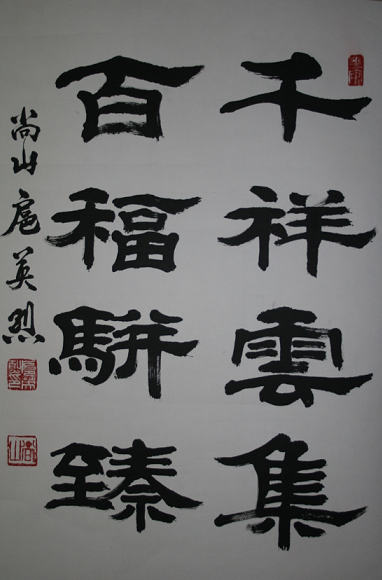 千祥雲集
百福駢臻
尚山扈英烈